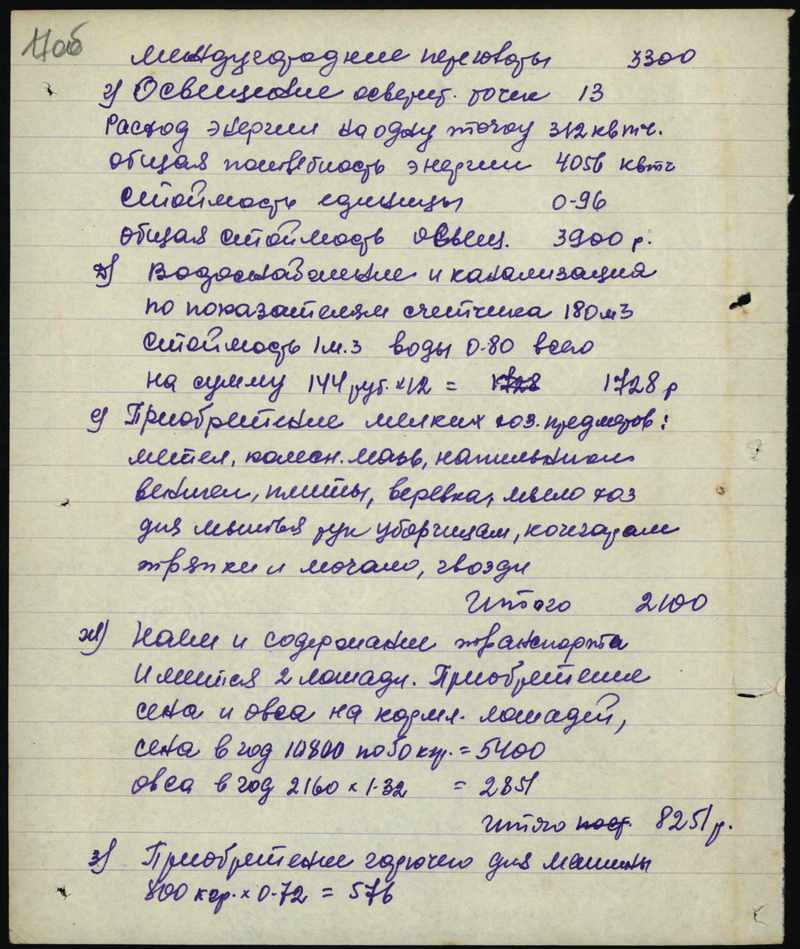 17об
междугородние переговоры 3300
г) Освещение осветит. точек 13
Расход энергии на одну точку 312 квтч.
общая потребность энергии 4056 квтч
стоймость единицы 0-96
общая стоймость освещ. 3900 р.
д) Водоснабжение и канализация
по показателям счетчика 180 м3
стоймость 1 м.3 воды 0-80 всего
на сумму 144 руб. × 12 = 1728 1728 р
е) Приобретение мелких хоз. предметов:
метел, колесн. мазь, напильники
веники, плиты, веревка, мыло хоз
для мытья рук уборщицам, кочегарам
тряпки и мочало, гвозди
Итого 2100
ж) Наем и содержание транспорта
Имеется 2 лошади. Приобретение
сена и овса на кормл. лошадей,
сена в год 10800 по 50 кр. = 5400
овса в год 2160 × 1-32 = 2851
итого 8251 р.
з) Приобретение горючего для машины
800 кгр. × 0-72 = 576